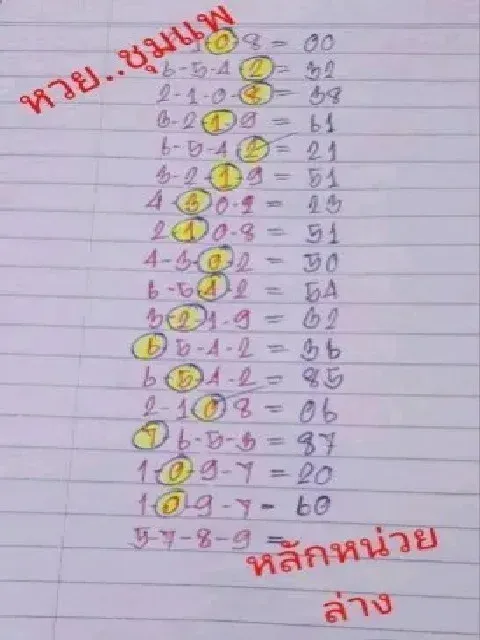 หวย..ชุมแพ
0 8 = 00
6-5-4 2 = 32
2-1-0-8 = 38
3-2 1-9 = 61
6-5-4 2 = 21
3-2-1 9 = 51
4 3 0-2 = 23
2 1 0-8 = 51
4-3-0 2 = 50
6-5 4 2 = 54
3 2-1-9 = 62
6 5-4-2 = 36
6 5-4-2 = 85
2-1 0 8 = 06
7 6-5-3 = 87
1-0-9-7 = 20
1 0-9-7 - 60
5-7-8-9 =
หลักหน่วย
ล่าง